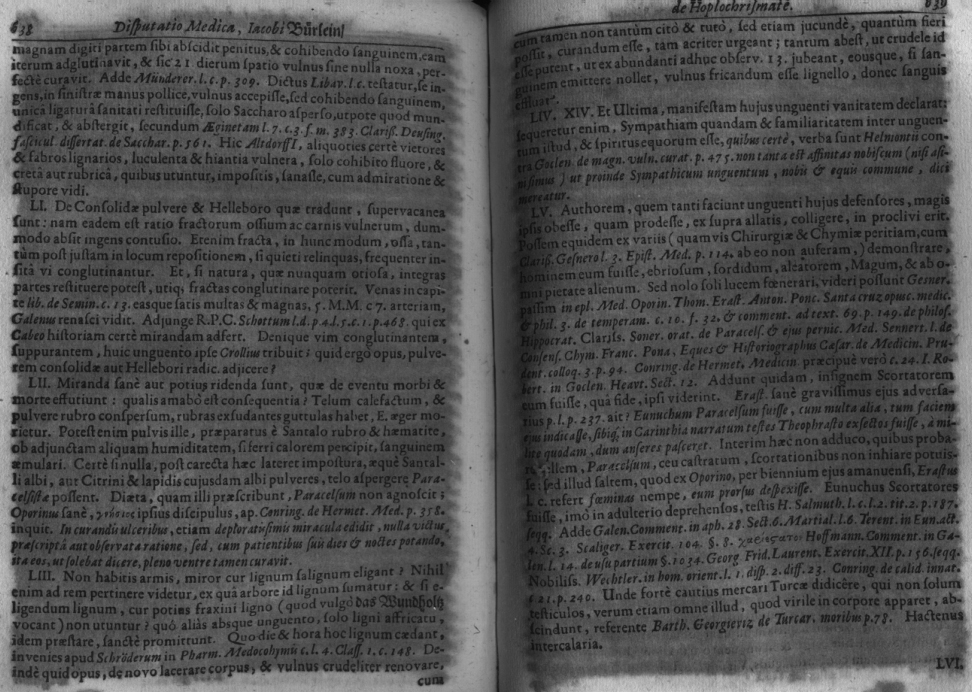 638 Disputatio Medica, Iacobi Bürlein!
magnam digiti partem sibi abscidit penitus, & cohibendo sanguinem, eam
iterum adglutinavit, & sic 21 dierum spatio vulnus sine nulla noxa, per-
fectè curavit. Adde Münderer. l. c. p. 309. Dictus Libav. l. c. testatur, se in-
gens, in sinistræ manus pollice, vulnus accepisse, sed cohibendo sanguinem,
unicâ ligaturâ sanitati restituisse, solo Saccharo asperso, utpote quod mun-
dificat, & abstergit, secundum Æginetam l. 7. c. 3. f. m. 383. Clariss. Deusing.
fascicul. dissertat. de Sacchar. p. 561. Hic AltdorffI, aliquoties certè vietores
& fabros lignarios, luculenta & hiantia vulnera, solo cohibito fluore, &
cretâ aut rubricâ, quibus utuntur, impositis, sanasse, cum admiratione &
stupore vidi.
LI. De Consolidæ pulvere & Helleboro quæ tradunt, supervacanea
sunt: nam eadem est ratio fractorum ossium ac carnis vulnerum, dum-
modo absit ingens contusio. Etenim fracta, in hunc modum, ossa, tan-
tùm post justam in locum repositionem, si quieti relinquas, frequenter in-
sitâ vi conglutinantur. Et, si natura, quæ nunquam otiosa, integras
partes restituere potest, utiq; fractas conglutinare poterit. Venas in capi-
te lib. de Semin. c. 13. easque satis multas & magnas, 5. M. M. c 7. arteriam,
Galenus renasci vidit. Adjunge R. P. C. Schottum l. d. p. 4. l. 5. c. 1. p. 468. qui ex
Cabeo historiam certè mirandam adfert. Denique vim conglutinantem,
suppurantem, huic unguento ipse Crollius tribuit? quid ergò opus, pulve-
rem consolidæ aut Hellebori radic. adjicere?
LII. Miranda sanè aut potius ridenda sunt, quæ de eventu morbi &
morte effutiunt: qualis amabò est consequentia? Telum calefactum, &
pulvere rubro conspersum, rubras exsudantes guttulas habet, E. æger mo-
rietur. Potest enim pulvis ille, præparatus è Santalo rubro & hæmatite,
ob adjunctam aliquam humiditatem, si ferri calorem percipit, sanguinem
æmulari. Certè si nulla, post carecta hæc lateret impostura, æquè Santal-
li albi, aut Citrini & lapidis cujusdam albi pulveres, telo aspergere Para-
celsistæ possent. Diæta, quam illi præscribunt, Paracelsum non agnoscit;
Oporinus sanè, ipsius discipulus, ap. Conring. de Hermet. Med. p. 358.
inquit. In curandis ulceribus, etiam deploratissimis miracula edidit, nulla victus
præscriptâ aut observata ratione, sed, cum patientibus suis dies & noctes potando,
ita eos, ut solebat dicere, pleno ventre tamen curavit.
LIII. Non habitis armis, miror cur lignum salignum eligant? Nihil
enim ad rem pertinere videtur, ex quâ arbore id lignum sumatur: & si e-
ligendum lignum, cur potius fraxini lignò (quod vulgò das Wundholtz
vocant) non utuntur? quò aliàs absque unguento, solo ligni affrictu,
idem præstare, sanctè promittunt. Quo die & hora hoc lignum cædant,
invenies apud Schröderum in Pharm. Medocohymic c. l. 4. Class. 1. c. 148. De-
inde quid opus, de novo lacerare corpus, & vulnus crudeliter renovare,
cum
de Hoplochrismate. 639
cum tamen non tantùm citò & tutò, sed etiam jucundè, quantùm fieri
possit, curandum esse, tam acriter urgeant; tantum abest, ut crudele id
esse putent, ut ex abundanti adhuc observ. 13. jubeant, eousque, si san-
guinem emittere nollet, vulnus fricandum esse lignello, donec sanguis
effluat.
LIV. XIV. Et Ultima, manifestam hujus unguenti vanitatem declarat:
sequeretur enim, Sympathiam quandam & familiaritatem inter unguen-
tum istud, & spiritus equorum esse, quibus certè, verba sunt Helmontii con-
tra Goclen. de magn. vuln. curat. p. 475. non tanta est affinitas nobiscum (nisi asi-
nissimus) ut proinde Sympathicum unguentum, nobis & equis commune, dici
mereatur.
LV. Authorem, quem tanti faciunt unguenti hujus defensores, magis
ipsis obesse, quam prodesse, ex supra allatis, colligere, in proclivi erit.
Possem equidem ex variis (quamvis Chirurgiæ & Chymiæ peritiam, cum
Clariss. Gesnero l. 3. Epist. Med. p. 114. ab eo non auferam,) demonstrare,
hominem eum fuisse, ebriosum, sordidum, aleatorem, Magum, & ab o-
mni pietate alienum. Sed nolo soli lucem fœnerari, videri possunt Gesner.
passim in epl. Med. Oporin. Thom. Erast. Anton. Ponc. Santa cruz opusc. medic.
& phil. 3. de temperam. c. 10. f. 32. & comment. ad text. 69. p. 149. de philos.
Hippocrat. Clariss. Soner. orat. de Paracels. & ejus pernic. Med. Sennert. l. de
Consens. Chym. Franc. Pona, Eques & Historiographus Cæsar. de Medicin. Pru-
dent. colloq. 3. p. 94. Conring. de Hermet. Medicin. præcipuè verò c. 24. l. Ro-
bert. in Goclen. Heavt. Sect. 12. Addunt quidam, insignem Scortatorem
eum fuisse, quâ fide, ipsi viderint. Erast. sanè gravissimus ejus adversa-
rius p. l. p. 237. ait? Eunuchum Paracelsum fuisse, cum multa alia, tum facies
ejus indicasse, sibiq; in Carinthia narratum testes Theophrasto exsectos fuisse, à mi-
lite quodam, dum anseres pasceret. Interim hæc non adduco, quibus proba-
re vellem, Paracelsum, ceu castratum, scortationibus non inhiare potuis-
se: sed illud saltem, quod ex Oporino, per biennium ejus amanuensi, Erastus
l. c. refert fœminas nempe, eum prorsus despexisse. Eunuchos Scortatores
fuisse, imò in adulterio deprehensos, testis H. Salmuth. l. c. l. 2. tit. 2. p. 187.
seqq. Adde Galen. Comment. in aph. 28. Sect. 6. Martial. l. 6. Terent. in Eun. act.
4. Sc. 3. Scaliger. Exercit. 104. §. 8. Hoffmann. Comment. in Ga-
len. l. 14. de usu partium §. 1034. Georg Frid. Laurent. Exercit. XII. p. 156. seqq.
Nobiliss. Wechtler. in hom. orient. l. 1. disp. 2. diff. 23. Conring. de calid. innat.
§ 21. p. 240. Unde fortè cautius mercari Turcæ didicère, qui non solum
testiculos, verum etiam omne illud, quod virile in corpore apparet, ab-
scindunt, referente Barth. Georgieviz de Turcar. moribus p. 78. Hactenus
intercalaria.
LVI.